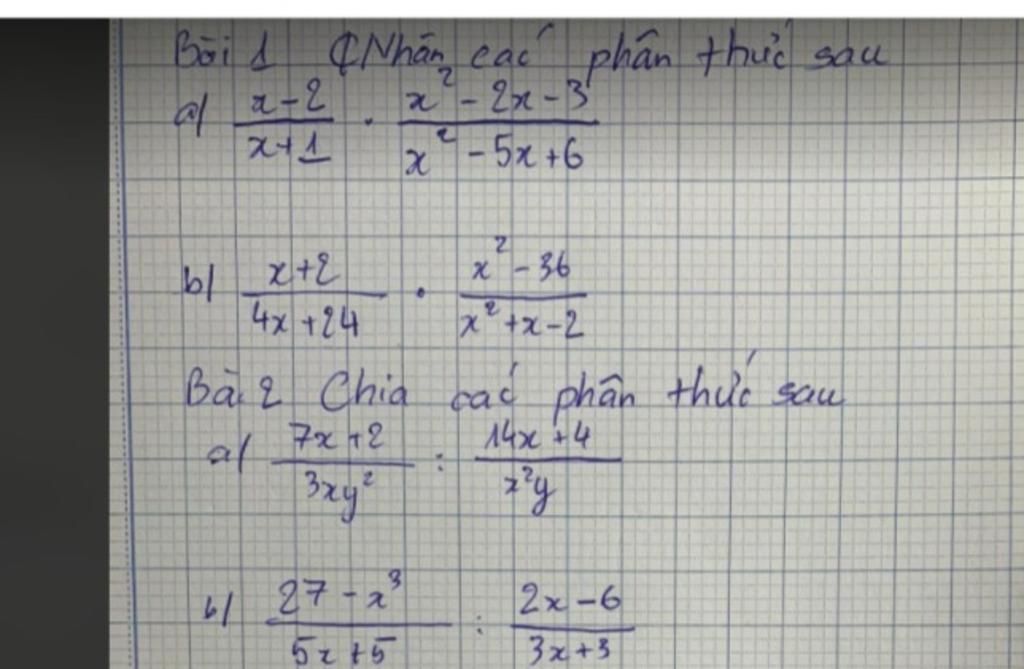 Bài 1 Nhân các phân thức sau
a) \frac{x-2}{x+1} . \frac{x^2-2x-3}{x^2-5x+6}
b) \frac{x+2}{4x+24} . \frac{x^2-36}{x^2+x-2}
Bà. 2 Chia các phân thức sau
a) \frac{7x+2}{3xy^2} : \frac{14x+4}{x^2y}
b) \frac{27-x^3}{5x+5} : \frac{2x-6}{3x+3}